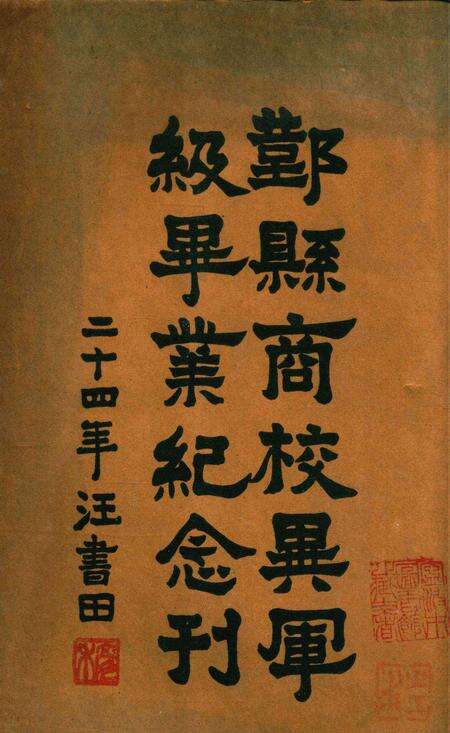 鄞縣商校異軍
級畢業紀念刊
二十四年汪書田